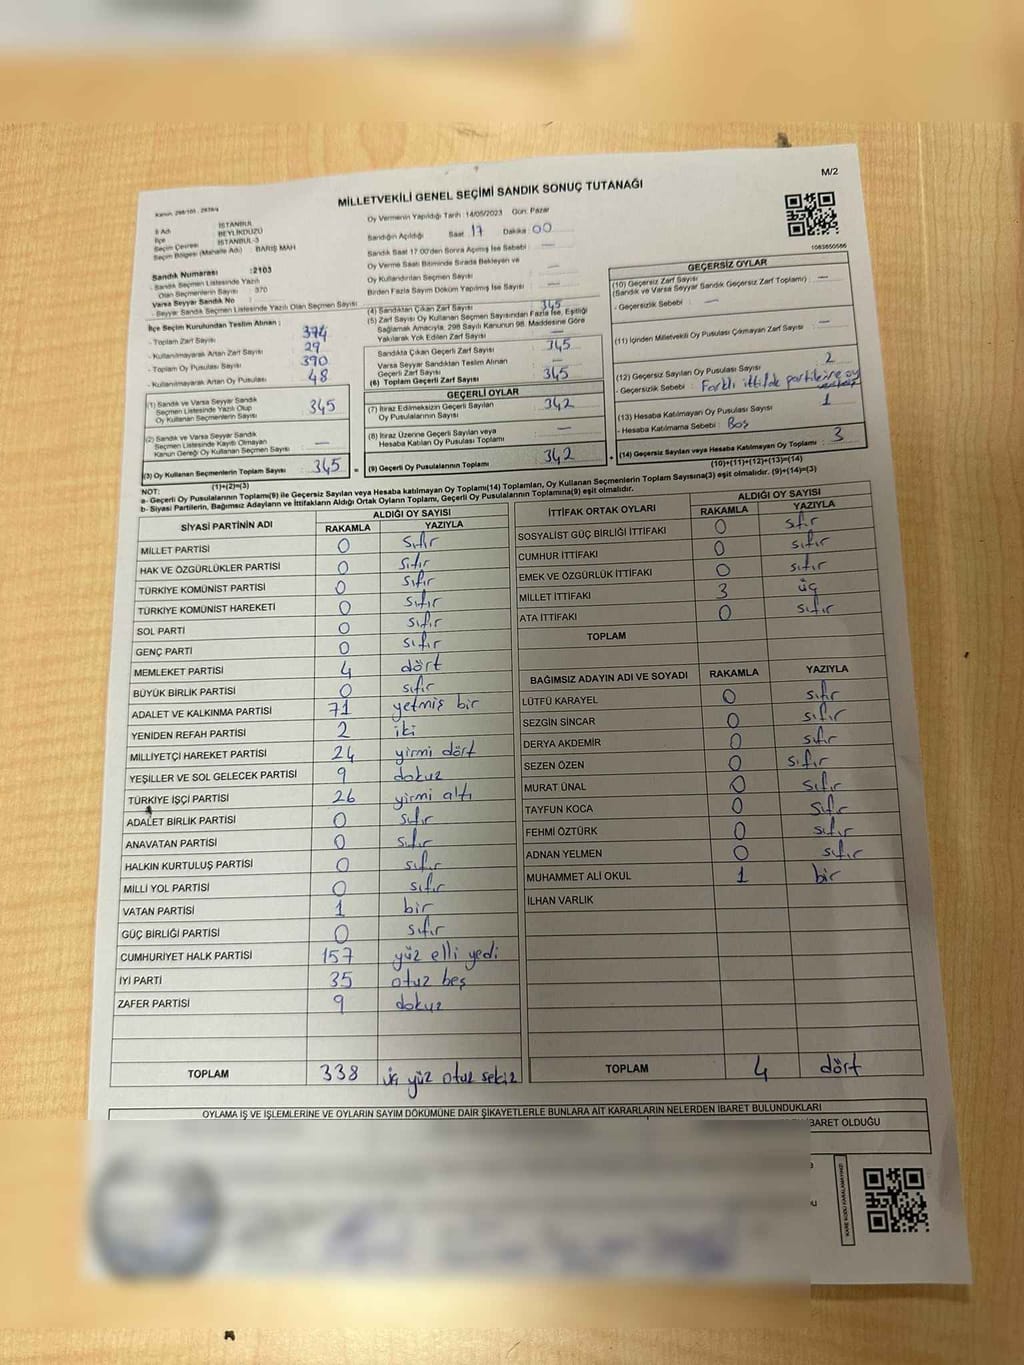 M/2
MİLLETVEKİLİ GENEL SEÇİMİ SANDIK SONUÇ TUTANAĞI
1083850586
İl Adı : İSTANBUL
İlçe : BEYLİKDÜZÜ
Seçim Çevresi : İSTANBUL-3
Seçim Bölgesi (Mahalle Adı) : BARIŞ MAH
Oy Vermenin Yapıldığı Tarih : 14/05/2023 Gün: Pazar
Sandığın Açıldığı Saat 17 Dakika : 00
Sandık Saat 17.00'den Sonra Açılmış İse Sebebi : —
Oy Verme Saati Bitiminde Sırada Bekleyen ve
Oy Kullandırılan Seçmen Sayısı : —
Birden Fazla Sayım Döküm Yapılmış İse Sayısı : —
Sandık Numarası :2103
- Sandık Seçmen Listesinde Yazılı
Olan Seçmenlerin Sayısı : 370
Varsa Seyyar Sandık No :
- Seyyar Sandık Seçmen Listesinde Yazılı Olan Seçmen Sayısı :
İlçe Seçim Kurulundan Teslim Alınan ;
- Toplam Zarf Sayısı : 374
- Kullanılmayarak Artan Zarf Sayısı : 29
- Toplam Oy Pusulası Sayısı : 390
- Kullanılmayarak Artan Oy Pusulası : 48
(1) Sandık ve Varsa Seyyar Sandık
Seçmen Listesinde Yazılı Olup
Oy Kullanan Seçmenlerin Sayısı : 345
(2) Sandık ve Varsa Seyyar Sandık
Seçmen Listesinde Kayıtlı Olmayan
Kanun Gereği Oy Kullanan Seçmen Sayısı : —
(3) Oy Kullanan Seçmenlerin Toplam Sayısı : 345
(1)+(2)=(3)
(4) Sandıktan Çıkan Zarf Sayısı : 345
(5) Zarf Sayısı Oy Kullanan Seçmen Sayısından Fazla İse, Eşitliği
Sağlamak Amacıyla, 298 Sayılı Kanunun 98. Maddesine Göre
Yakılarak Yok Edilen Zarf Sayısı : —
Sandıkta Çıkan Geçerli Zarf Sayısı : 345
Varsa Seyyar Sandıktan Teslim Alınan
Geçerli Zarf Sayısı : —
(6) Toplam Geçerli Zarf Sayısı : 345
GEÇERLİ OYLAR
(7) İtiraz Edilmeksizin Geçerli Sayılan
Oy Pusulalarının Sayısı : 342
(8) İtiraz Üzerine Geçerli Sayılan veya
Hesaba Katılan Oy Pusulası Toplamı : —
(9) Geçerli Oy Pusulalarının Toplamı : 342
GEÇERSİZ OYLAR
(10) Geçersiz Zarf Sayısı
(Sandık ve Varsa Seyyar Sandık Geçersiz Zarf Toplamı) : —
- Geçersizlik Sebebi : —
(11) İçinden Milletvekili Oy Pusulası Çıkmayan Zarf Sayısı : —
(12) Geçersiz Sayılan Oy Pusulası Sayısı : 2
- Geçersizlik Sebebi : Farklı ittifak partilerine oy
(13) Hesaba Katılmayan Oy Pusulası Sayısı : 1
- Hesaba Katılmama Sebebi : Boş
(14) Geçersiz Sayılan veya Hesaba Katılmayan Oy Toplamı : 3
(10)+(11)+(12)+(13)=(14)
NOT:
a- Geçerli Oy Pusulalarının Toplamı(9) ile Geçersiz Sayılan veya Hesaba katılmayan Oy Toplamı(14) Toplamları, Oy Kullanan Seçmenlerin Toplam Sayısına(3) eşit olmalıdır. (9)+(14)=(3)
b- Siyasi Partilerin, Bağımsız Adayların ve İttifakların Aldığı Ortak Oyların Toplamı, Geçerli Oy Pusulalarının Toplamına(9) eşit olmalıdır.
SİYASİ PARTİNİN ADI ALDIĞI OY SAYISI
RAKAMLA YAZIYLA
MİLLET PARTİSİ 0 sıfır
HAK VE ÖZGÜRLÜKLER PARTİSİ 0 sıfır
TÜRKİYE KOMÜNİST PARTİSİ 0 sıfır
TÜRKİYE KOMÜNİST HAREKETİ 0 sıfır
SOL PARTİ 0 sıfır
GENÇ PARTİ 0 sıfır
MEMLEKET PARTİSİ 4 dört
BÜYÜK BİRLİK PARTİSİ 0 sıfır
ADALET VE KALKINMA PARTİSİ 71 yetmiş bir
YENİDEN REFAH PARTİSİ 2 iki
MİLLİYETÇİ HAREKET PARTİSİ 24 yirmi dört
YEŞİLLER VE SOL GELECEK PARTİSİ 9 dokuz
TÜRKİYE İŞÇİ PARTİSİ 26 yirmi altı
ADALET BİRLİK PARTİSİ 0 sıfır
ANAVATAN PARTİSİ 0 sıfır
HALKIN KURTULUŞ PARTİSİ 0 sıfır
MİLLİ YOL PARTİSİ 0 sıfır
VATAN PARTİSİ 1 bir
GÜÇ BİRLİĞİ PARTİSİ 0 sıfır
CUMHURİYET HALK PARTİSİ 157 yüz elli yedi
İYİ PARTİ 35 otuz beş
ZAFER PARTİSİ 9 dokuz
TOPLAM 338 üç yüz otuz sekiz
İTTİFAK ORTAK OYLARI ALDIĞI OY SAYISI
RAKAMLA YAZIYLA
SOSYALİST GÜÇ BİRLİĞİ İTTİFAKI 0 sıfır
CUMHUR İTTİFAKI 0 sıfır
EMEK VE ÖZGÜRLÜK İTTİFAKI 0 sıfır
MİLLET İTTİFAKI 3 üç
ATA İTTİFAKI 0 sıfır
TOPLAM
BAĞIMSIZ ADAYIN ADI VE SOYADI RAKAMLA YAZIYLA
LÜTFÜ KARAYEL 0 sıfır
SEZGİN SİNCAR 0 sıfır
DERYA AKDEMİR 0 sıfır
SEZEN ÖZEN 0 sıfır
MURAT ÜNAL 0 sıfır
TAYFUN KOCA 0 sıfır
FEHMİ ÖZTÜRK 0 sıfır
ADNAN YELMEN 0 sıfır
MUHAMMET ALİ OKUL 1 bir
İLHAN VARLIK
TOPLAM 4 dört
OYLAMA İŞ VE İŞLEMLERİNE VE OYLARIN SAYIM DÖKÜMÜNE DAİR ŞİKAYETLERLE BUNLARA AİT KARARLARIN NELERDEN İBARET BULUNDUKLARI
BARET OLDUĞU